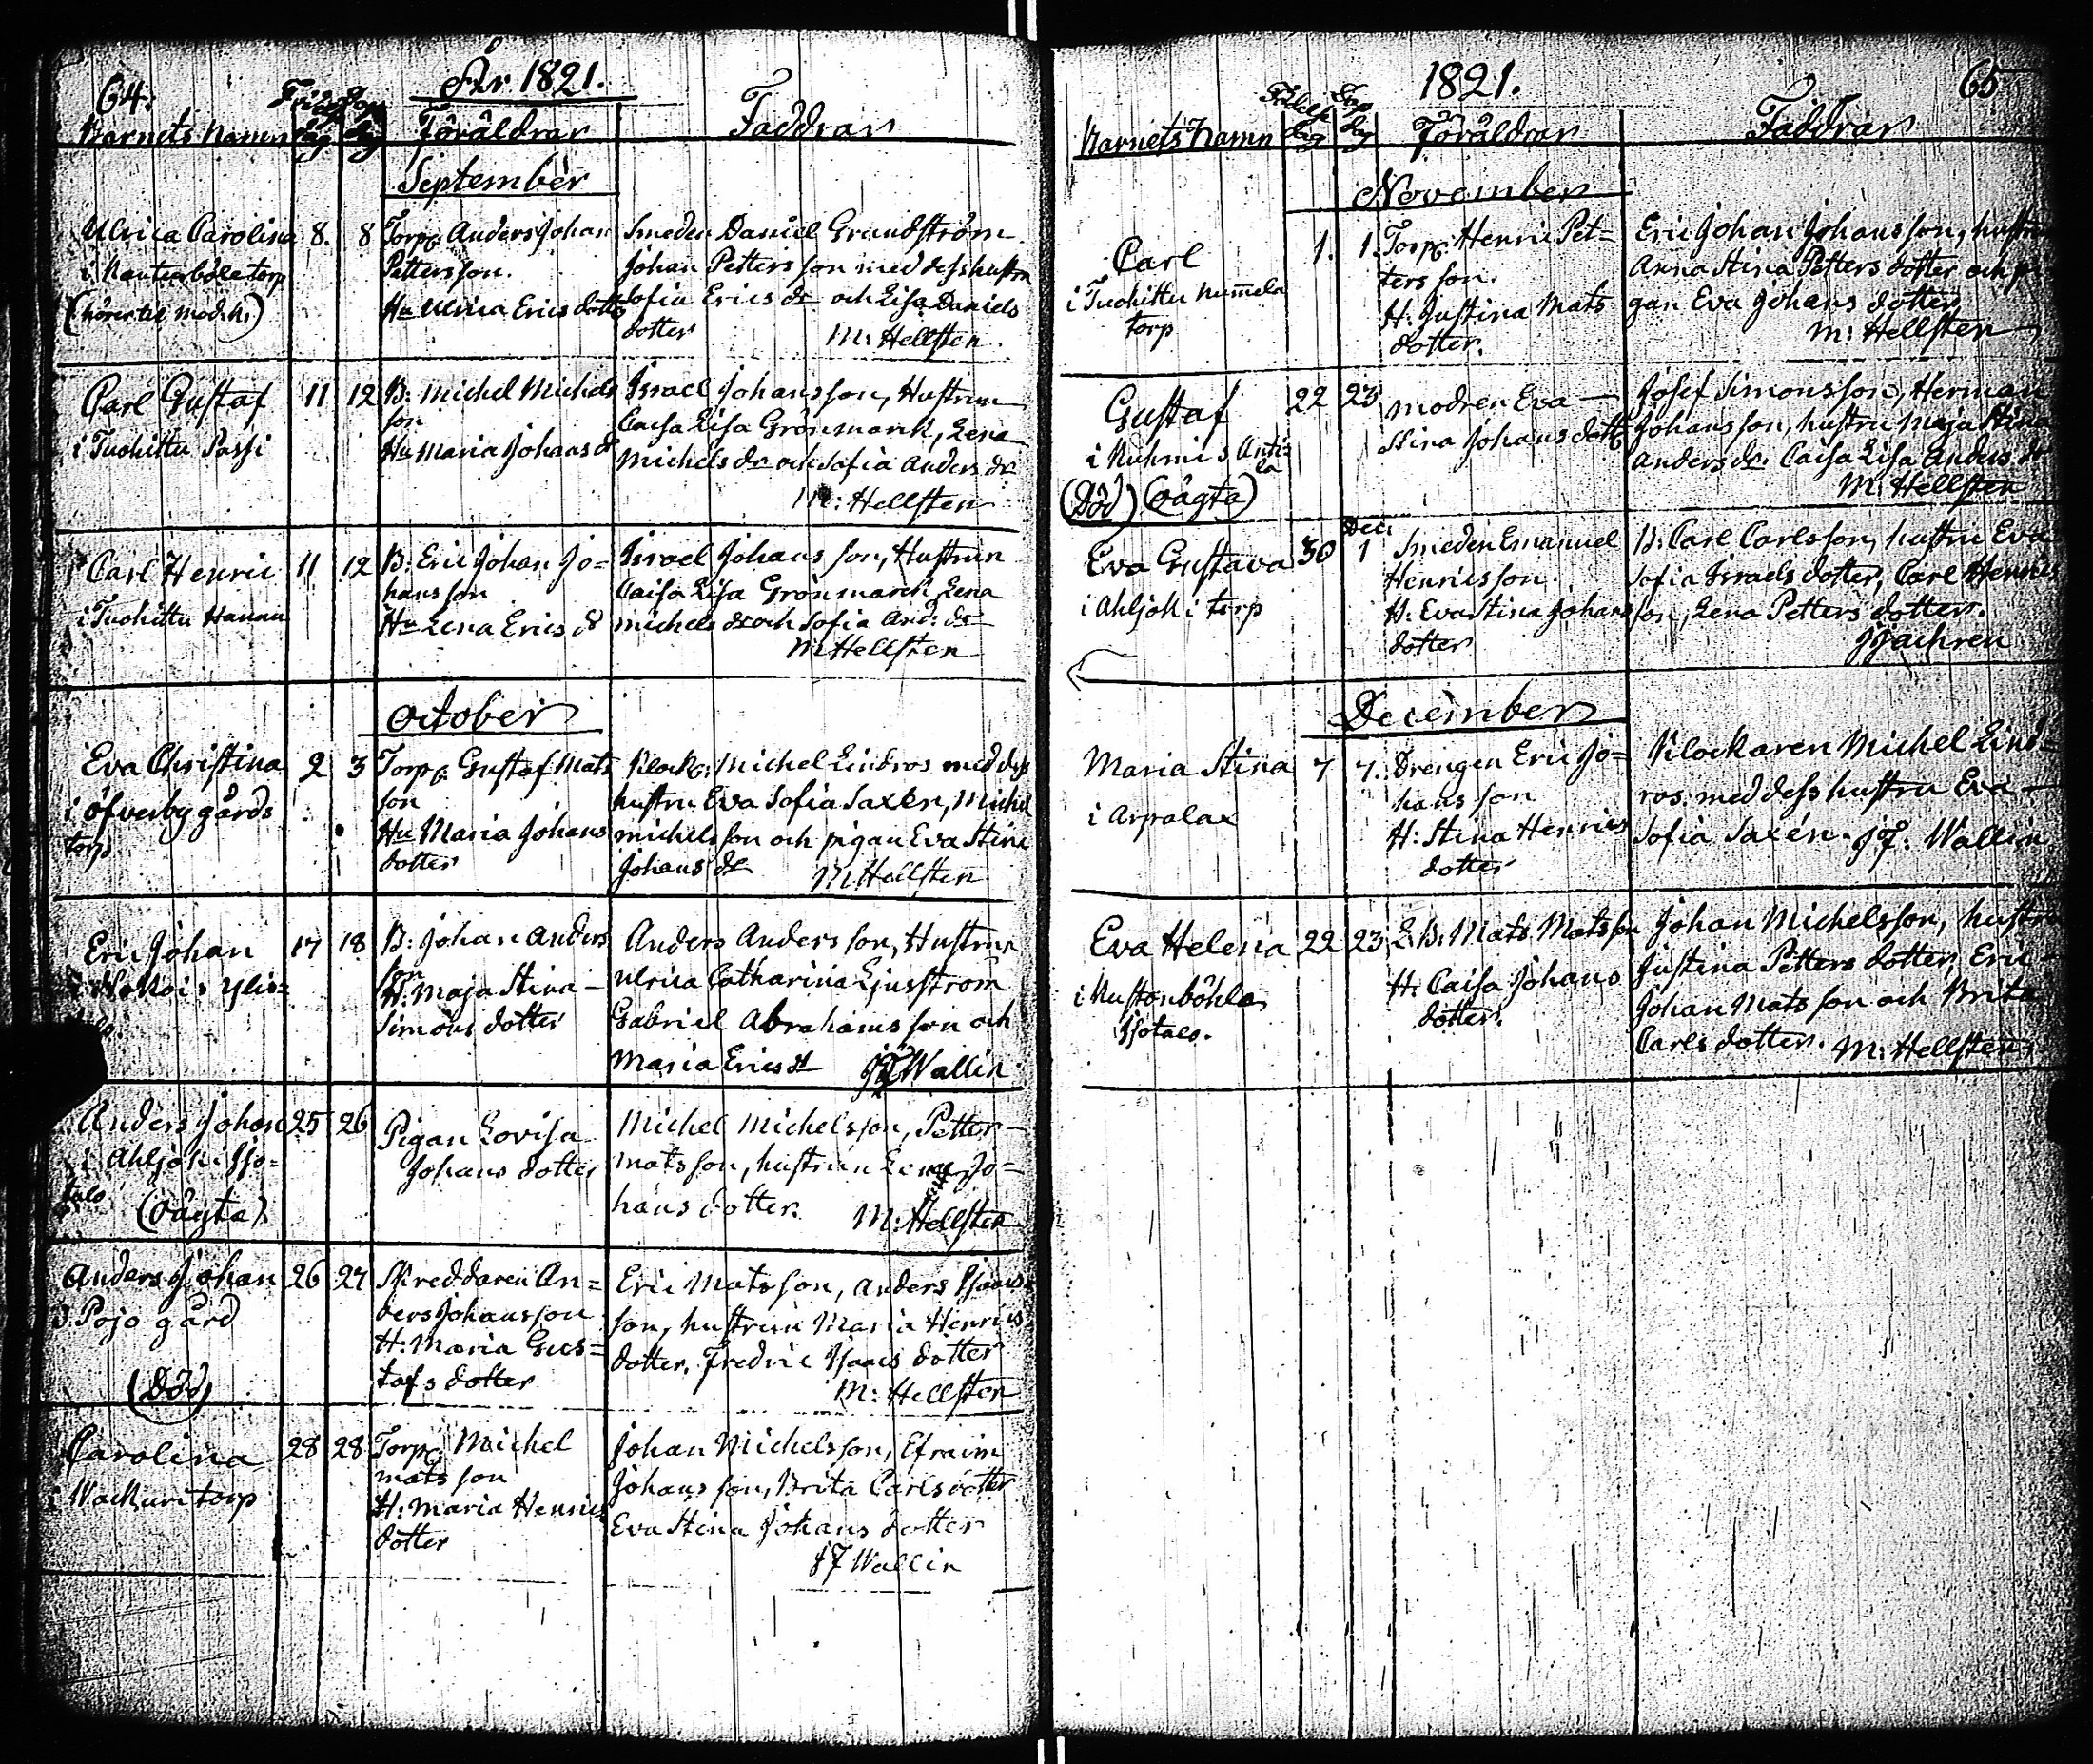 64.
År 1821.
Barnets Namn
Föräldrar
Faddrar
September
Ulrica Carolina 8. 8 Torp. Anders Johan Smeden Daniel Grundström
Pettersson. Johan Pettersson med dess hustru
Hu Ulrica Erics dott Sofia Erics dr och Lisa Daniels
(hörer til mod. k.) dotter M: Hellsten.
Carl Gustaf 11 12 B: Michel Michels Israel Johansson, Hustrun
son Caisa Lisa Grönmark, Lena
i Tuohittu Passi Hu Maria Johans d Michels dr och Sofia Anders dr
M: Hellsten
Carl Henric 11 12 B: Eric Johan Jo= Israel Johansson, Hustrun
hansson Caisa Lisa Grönmarck, Lena
i Tuohittu Hannu Hu Lena Erics d michels dr och Sofia And: dr
M Hellsten
October
Eva Christina 2 3 Torp. Gustaf Mats Klock: Michel Lindros med dess
i öfverby gårds son hustru Eva Sofia Saxén, Michel
torp Hu Maria Johans michelsson och pigan Eva Stina
dotter Johans dr M Hellsten
Eric Johan 17 18 B: Johan Anders Anders Andersson, Hustrun
son Ulrica Catharina Ljusström
H: Maja Stina Gabriel Abrahamsson och
Simons dotter Maria Erics d JF Wallin
Anders Johan 25 26 Pigan Lovisa Michel Michelsson, Petter
i Ahljoki Iso= Johans dotter Matsson, hustrun Lena Jo=
talo (oägta) hans dotter. M: Hellsten
Anders Johan 26 27 Skreddaren An= Eric Matsson, Anders Isaacs
i Pojo gård ders Johansson son, hustrun Maria Henrics
H: Maria Gus= dotter, Fredric Isaacs dotter
(Död) tafs dotter M: Hellsten
Carolina 28 28 Torp. Michel Johan Michelsson, Efraim
matsson Johansson, Brita Carlsdotter
torp H: Maria Henrics Eva Stina Johans dotter
dotter JF Wallin
1821. 65
Barnets Namn
Föräldrar
Faddrar
November
Carl 1. 1. Torp. Henric Pet= Eric Johan Johansson, hustru
tersson. Anna Stina Petters dotter och pi
i Tuohittu Nummela H: Justina Mats gan Eva Johans dotter
torp dotter. M: Hellsten
Gustaf 22 23 modren Eva Josef Simonsson, Herman
i Kuhmis Anti= Stina Johans dott Johansson, hustru Maja Stina
la Anders dr. Caisa Lisa Anders dr
(Död) (oägta) M: Hellsten
Dec:
Eva Gustava 30 1 Smeden Emanuel B: Carl Carlsson, hustru Eva
Henricsson. Sofia Israels dotter, Carl Henrics
i Ahljoki torp H: Eva Stina Johans son, Lena Petters dotter.
dotter
December
Maria Stina 7 7. Drengen Eric Jo= Klockaren Michel Lind=
hansson ros. med dess hustru Eva
i Arpalax H: Stina Henrics Sofia Saxén. JF. Wallin
dotter
Eva Helena 22 23 L.B: Mats Matsson Johan Michelsson, hustru
H: Caisa Johans Justina Petters dotter, Eric
i Kustonböhle dotter. Johan Matsson och Brita
Isotalo. Carls dotter. M: Hellsten